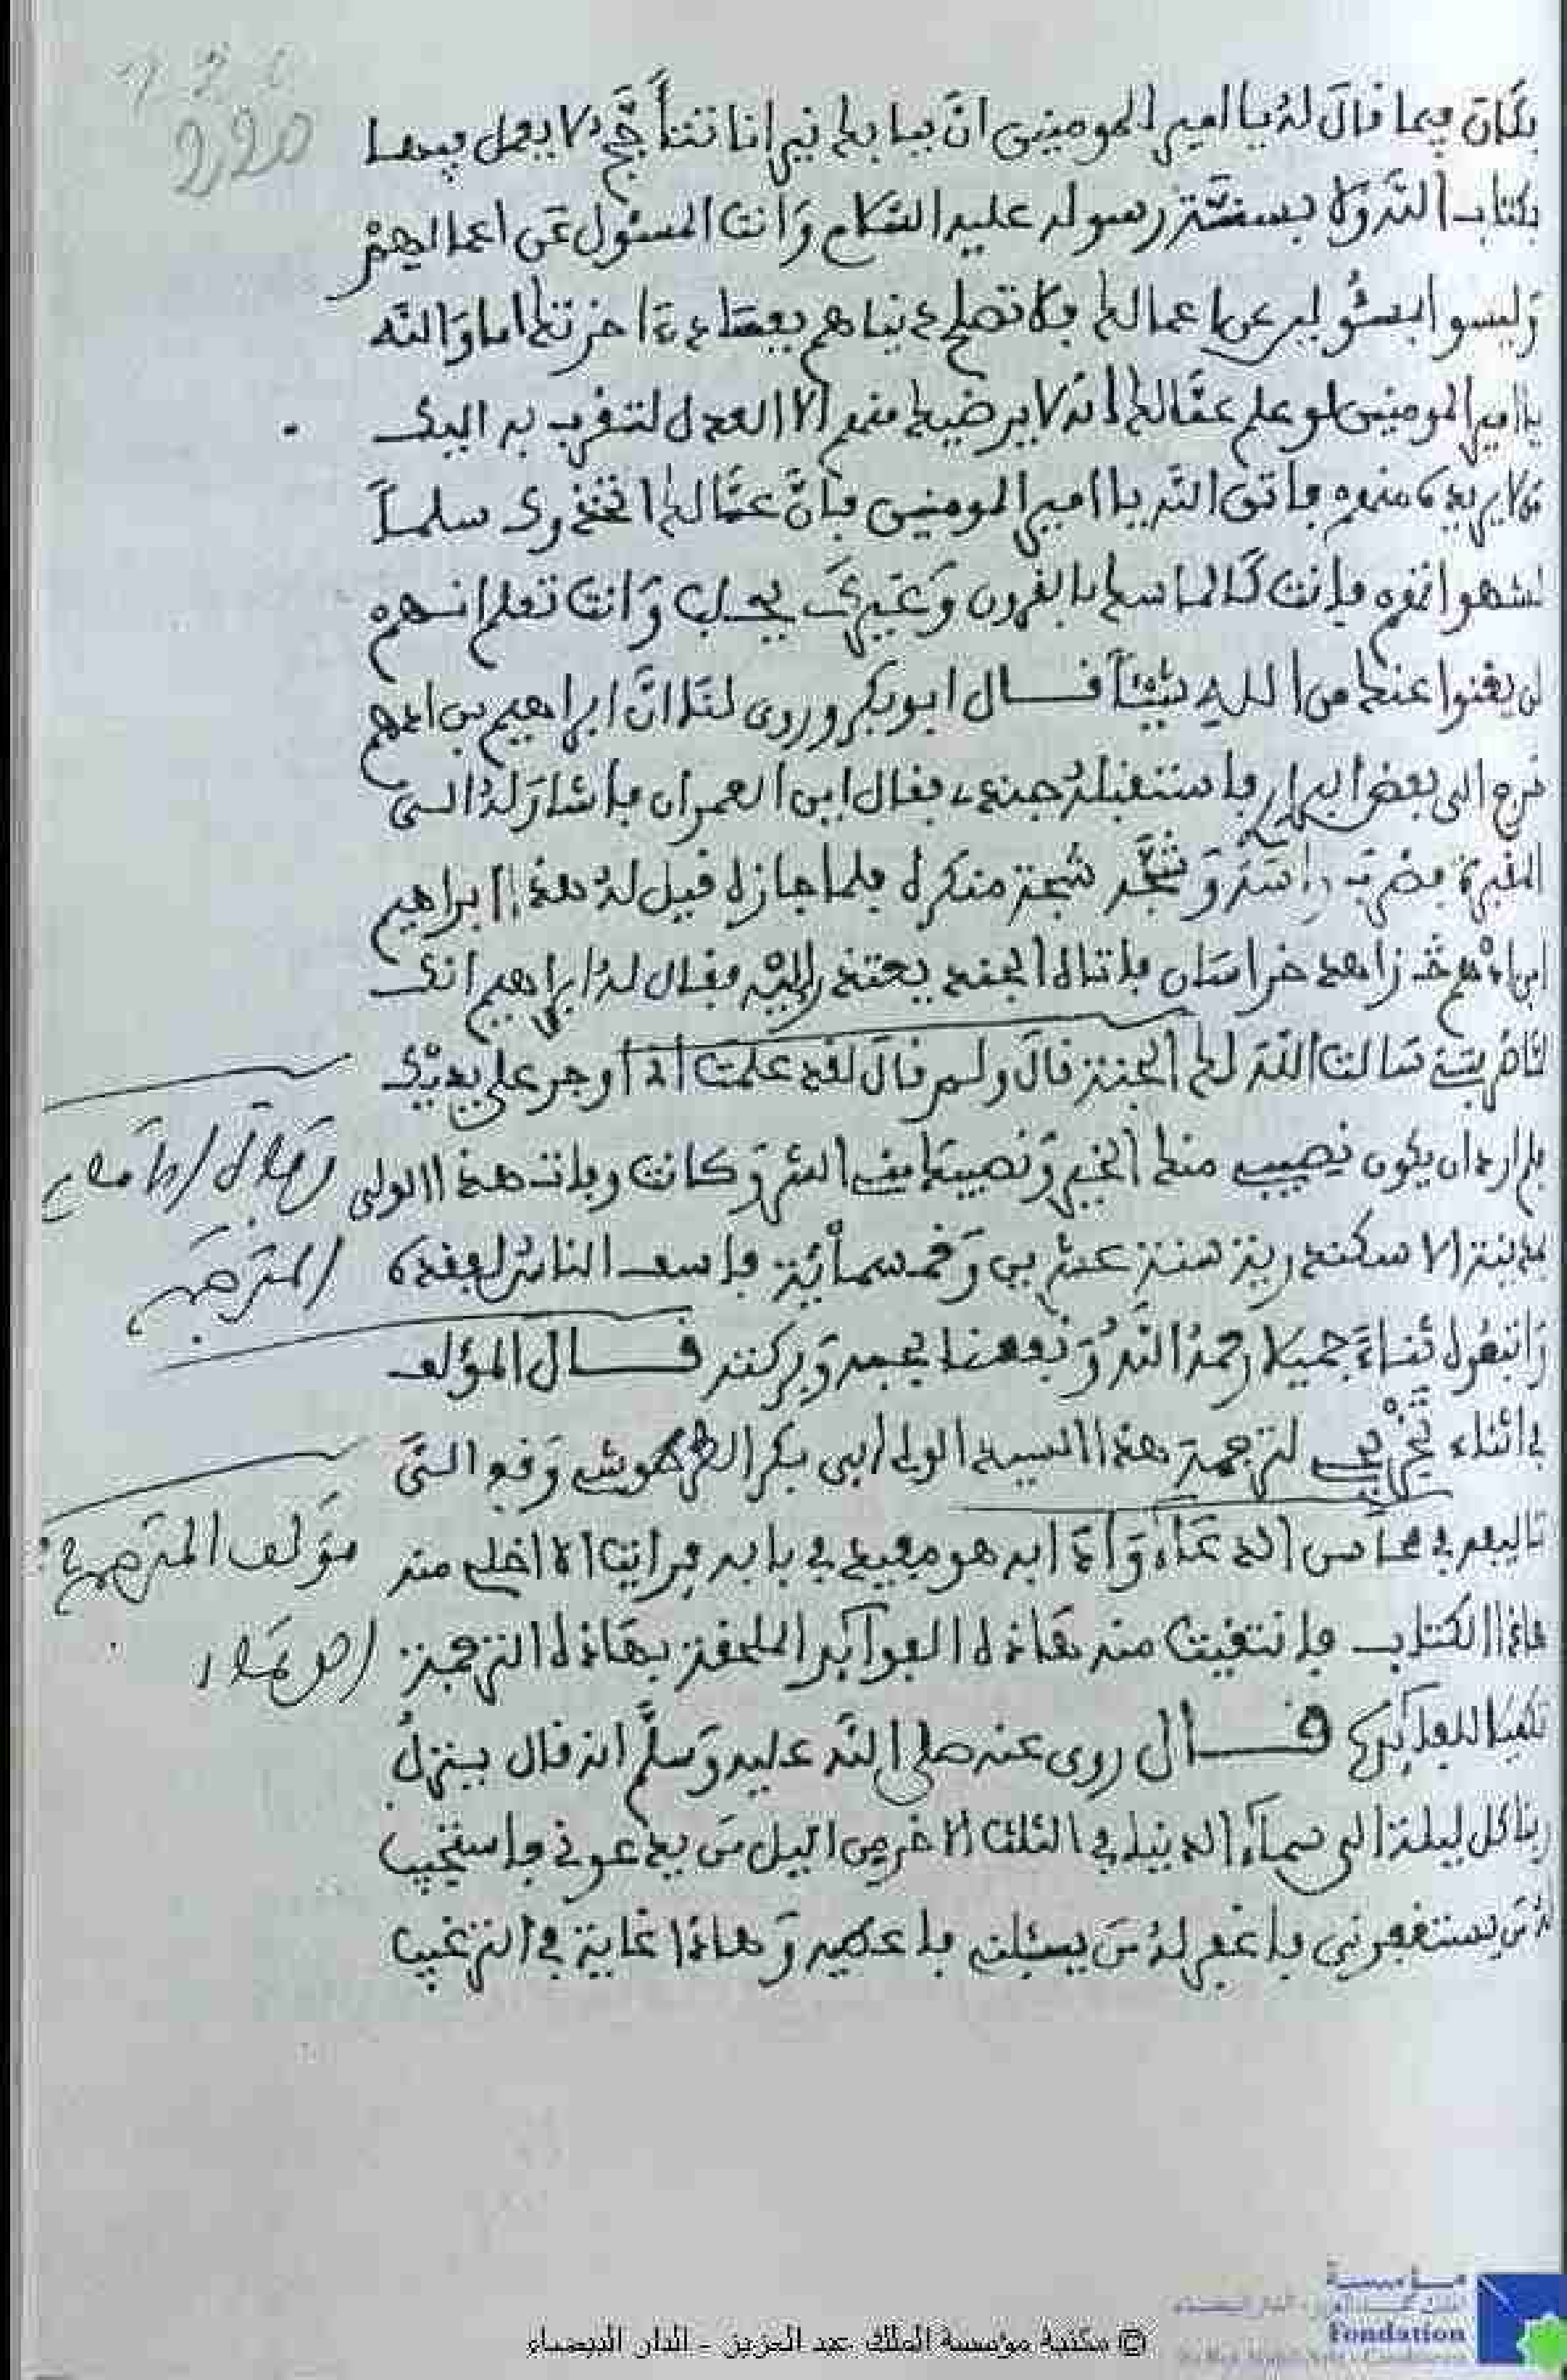 فكان فيما قال له يا امير المومنين ان ببابك نيرانا تتأجج لا يعمل فيها
بكتاب الله ولا بسنة رسوله عليه السلام وانت المسئول عن اعمالهم
وليسوا بمسئولين عن اعمالك فلا تصلح دنياهم بفساد ءاخرتك اما والله
يا امير المومنين لو علم عمالك انه لا يرضيك منهم الا العدل لتقرب به اليك
من لا يريده منهم فاتق الله يا امير المومنين فان عمالك اتخذوك سلما
لشهواتهم فانت كالماسك بالقرون وغيرك يحلب وانت تعلم انهم
لن يغنوا عنك من الله شيئا قال ابو بكر وروى لنا ان ابراهيم بن ادهم
خرج الى بعض البراري فاستقبله جندي فقال اين العمران فاشار له الى
المقبرة فضرب راسه وشجه شجة منكرة فلما جازه قيل له هذا ابراهيم
ابن ادهم زاهد خراسان فاتاه الجندي يعتذر اليه فقال له ابراهيم انك
لما ضربتني سالت الله لك الجنة قال ولم قال لقد علمت اني اوجر على يديك
فلم ارد ان يكون نصيبي منك الخير ونصيبك مني الشر وكانت وفات هذا الولي
بمدينة الاسكندرية سنة عشرين وخمسمائة فاسف الناس لفقده
واتبعوه ثناء جميلا رحمه الله ونفعنا بحبه وبركته قال المؤلف
في اثناء تخريجي لترجمة هذا السيد الولي ابي بكر الطرطوشي وقع الي
تاليفه في محاسن الدعاء وءادابه هو مفيد في بابه فرايت الا اخلي منه
هاذا الكتاب فانتقيت منه هاذه الفوائد الملحقة بهاذه الترجمة
تكميلا للفائدة قال روى عنه صلى الله عليه وسلم انه قال ينزل
ربنا كل ليلة الى سماء الدنيا في الثلث الاخر من اليل من يدعوني فاستجيب
له من يستغفرني فاغفر له من يسئلني فاعطيه وهاذا غاية في الترغيب
وفاة الامام
المترجم
مؤلف المترجم في
الدعاء
220
© مكتبة مؤسسة الملك عبد العزيز - الدار البيضاء
مؤسسة
Fondation